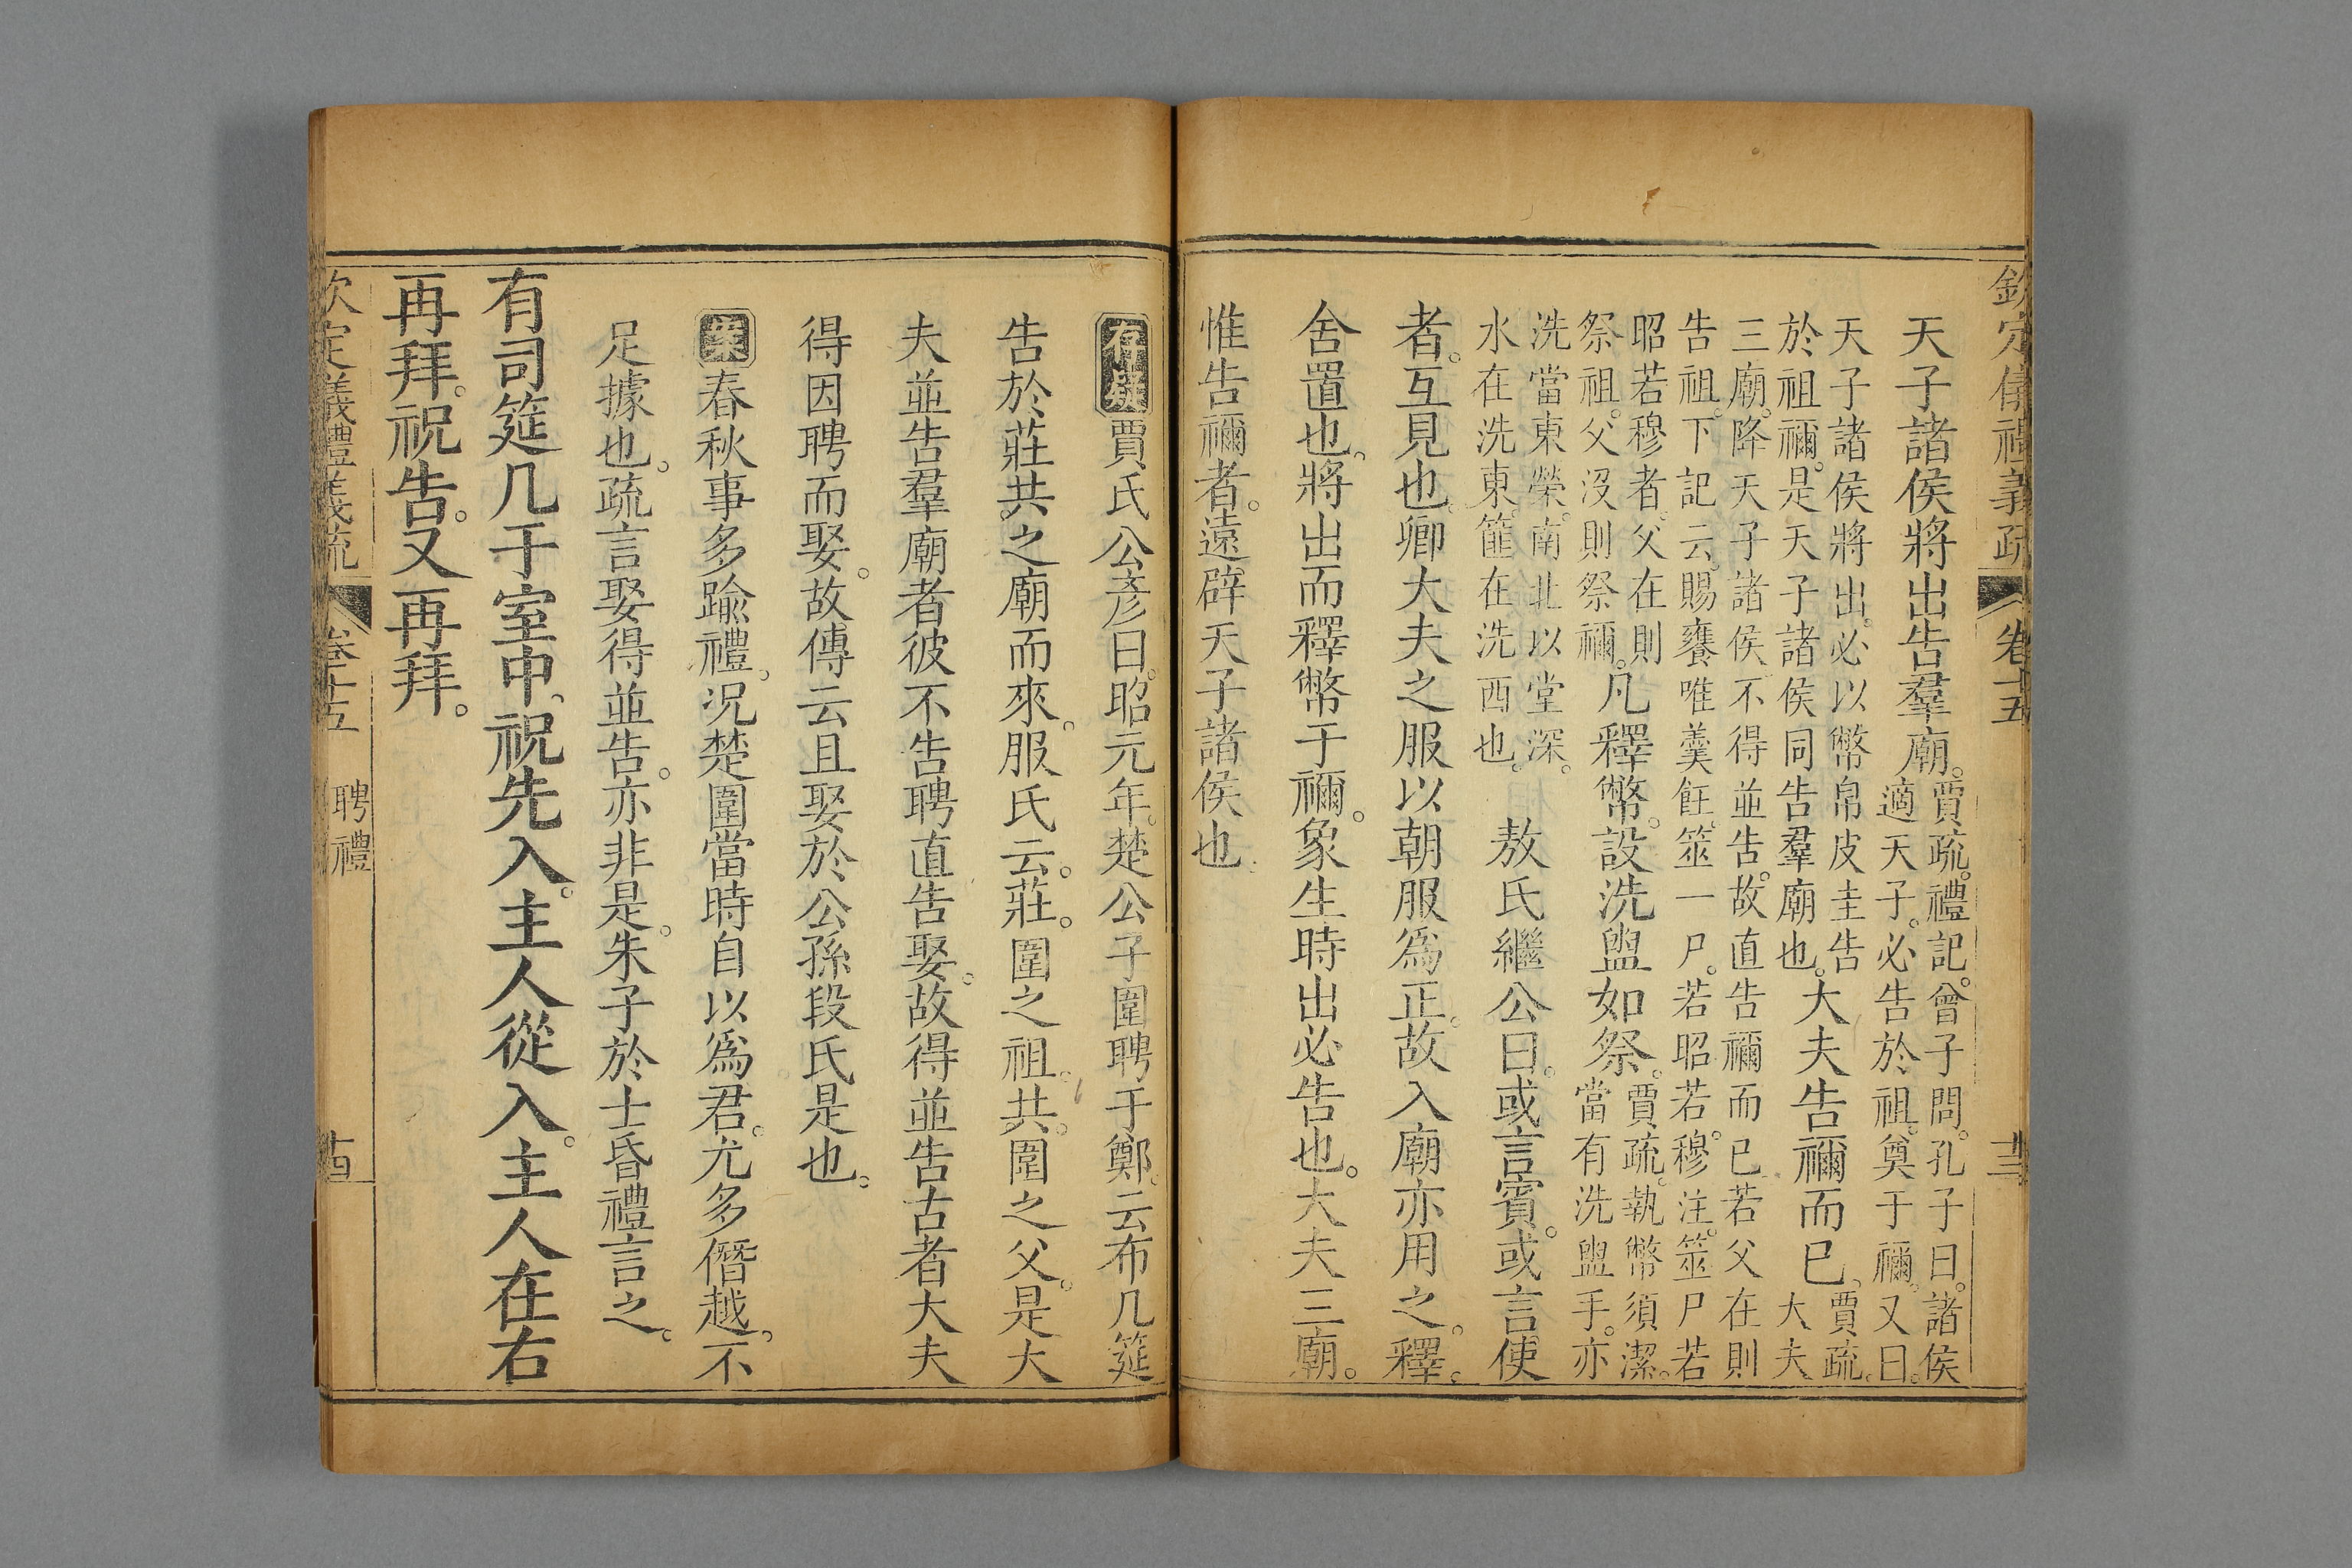 欽定儀禮義疏 卷十五 十三
天子諸侯將出告羣廟。賈疏。禮記。曾子問。孔子曰。諸侯適天子。必告於祖。奠于禰。又曰。
天子諸侯將出。必以幣帛皮圭告於祖禰。是天子諸侯同告羣廟也。大夫告禰而已。賈疏。大夫。
三廟。降天子諸侯不得並告。故直告禰而已。若父在則告祖。下記云。賜饔唯羹飪。筮一尸。若昭若穆。注。筮尸若
昭若穆者。父在則祭祖。父沒則祭禰。凡釋幣。設洗盥如祭。賈疏。執幣須潔。當有洗盥手。亦
洗當東榮。南北以堂深。水在洗東。篚在洗西也。 敖氏繼公曰。或言賓。或言使
者。互見也。卿大夫之服以朝服爲正。故入廟亦用之。釋。
舍置也。將出而釋幣于禰。象生時出必告也。大夫三廟。
惟告禰者。遠辟天子諸侯也。
存疑 賈氏公彦曰。昭元年。楚公子圍聘于鄭。云布几筵
告於莊共之廟而來。服氏云。莊。圍之祖。共。圍之父。是大
夫並告羣廟者彼不告聘直告娶。故得並告古者大夫
得因聘而娶。故傳云且娶於公孫段氏是也。
案 春秋事多踰禮。况楚圍當時自以爲君。尤多僭越。不
足據也。疏言娶得並告。亦非是。朱子於士昏禮言之。
有司筵几于室中。祝先入。主人從入。主人在右
再拜。祝告。又再拜。
欽定儀禮義疏 卷十五 聘禮 十四